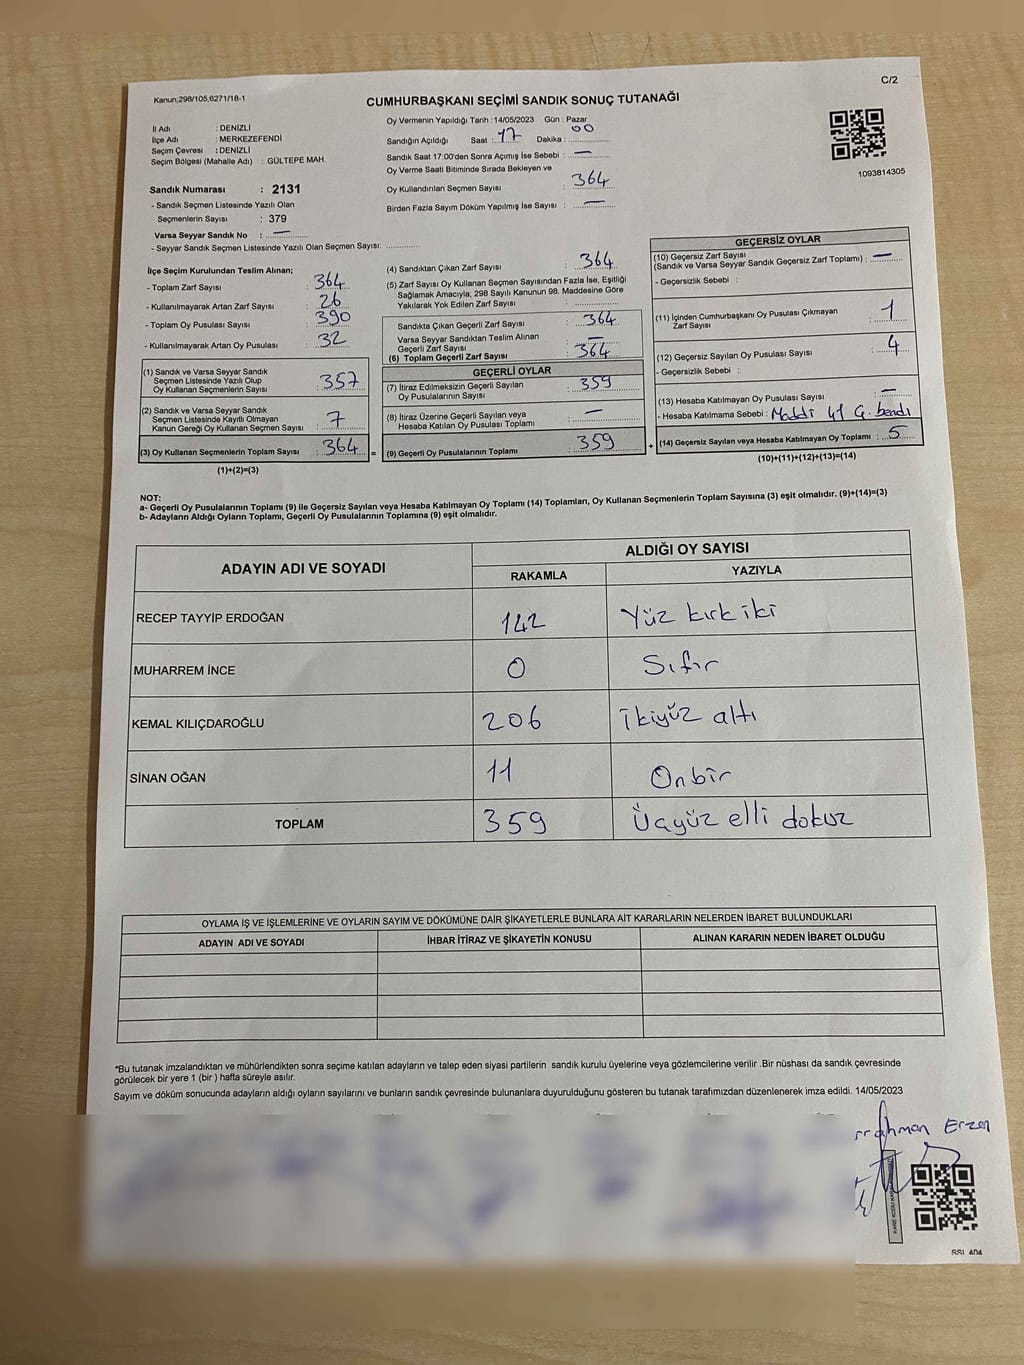 Kanun;298/105,6271/18-1
C/2
CUMHURBAŞKANI SEÇİMİ SANDIK SONUÇ TUTANAĞI
İl Adı : DENİZLİ
İlçe Adı : MERKEZEFENDİ
Seçim Çevresi : DENİZLİ
Seçim Bölgesi (Mahalle Adı) : GÜLTEPE MAH.
Sandık Numarası : 2131
- Sandık Seçmen Listesinde Yazılı Olan
Seçmenlerin Sayısı : 379
Varsa Seyyar Sandık No : —
- Seyyar Sandık Seçmen Listesinde Yazılı Olan Seçmen Sayısı: ..............
Oy Vermenin Yapıldığı Tarih : 14/05/2023 Gün : Pazar
Sandığın Açıldığı Saat : 17 Dakika : 00
Sandık Saat 17:00'den Sonra Açımış İse Sebebi : —
Oy Verme Saati Bitiminde Sırada Bekleyen ve
Oy Kullandırılan Seçmen Sayısı : 364
Birden Fazla Sayım Döküm Yapılmış İse Sayısı : —
1093814305
İlçe Seçim Kurulundan Teslim Alınan;
- Toplam Zarf Sayısı : 364
- Kullanılmayarak Artan Zarf Sayısı : 26
- Toplam Oy Pusulası Sayısı : 390
- Kullanılmayarak Artan Oy Pusulası : 32
(1) Sandık ve Varsa Seyyar Sandık
Seçmen Listesinde Yazılı Olup
Oy Kullanan Seçmenlerin Sayısı : 357
(2) Sandık ve Varsa Seyyar Sandık
Seçmen Listesinde Kayıtlı Olmayan
Kanun Gereği Oy Kullanan Seçmen Sayısı : 7
(3) Oy Kullanan Seçmenlerin Toplam Sayısı : 364 =
(1)+(2)=(3)
(4) Sandıktan Çıkan Zarf Sayısı : 364
(5) Zarf Sayısı Oy Kullanan Seçmen Sayısından Fazla İse, Eşitliği
Sağlamak Amacıyla; 298 Sayılı Kanunun 98. Maddesine Göre
Yakılarak Yok Edilen Zarf Sayısı : ..............
Sandıkta Çıkan Geçerli Zarf Sayısı : 364
Varsa Seyyar Sandıktan Teslim Alınan
Geçerli Zarf Sayısı : —
(6) Toplam Geçerli Zarf Sayısı : 364
GEÇERLİ OYLAR
(7) İtiraz Edilmeksizin Geçerli Sayılan
Oy Pusulalarının Sayısı : 359
(8) İtiraz Üzerine Geçerli Sayılan veya
Hesaba Katılan Oy Pusulası Toplamı : —
(9) Geçerli Oy Pusulalarının Toplamı : 359 +
GEÇERSİZ OYLAR
(10) Geçersiz Zarf Sayısı
(Sandık ve Varsa Seyyar Sandık Geçersiz Zarf Toplamı) : —
- Geçersizlik Sebebi :
(11) İçinden Cumhurbaşkanı Oy Pusulası Çıkmayan
Zarf Sayısı : 1
(12) Geçersiz Sayılan Oy Pusulası Sayısı : 4
- Geçersizlik Sebebi :
(13) Hesaba Katılmayan Oy Pusulası Sayısı : —
- Hesaba Katılmama Sebebi : Maddi 41 Ç. bendi
(14) Geçersiz Sayılan veya Hesaba Katılmayan Oy Toplamı : 5
(10)+(11)+(12)+(13)=(14)
NOT:
a- Geçerli Oy Pusulalarının Toplamı (9) ile Geçersiz Sayılan veya Hesaba Katılmayan Oy Toplamı (14) Toplamları, Oy Kullanan Seçmenlerin Toplam Sayısına (3) eşit olmalıdır. (9)+(14)=(3)
b- Adayların Aldığı Oyların Toplamı, Geçerli Oy Pusulalarının Toplamına (9) eşit olmalıdır.
ADAYIN ADI VE SOYADI
ALDIĞI OY SAYISI
RAKAMLA YAZIYLA
RECEP TAYYİP ERDOĞAN 142 Yüz kırk iki
MUHARREM İNCE 0 Sıfır
KEMAL KILIÇDAROĞLU 206 İkiyüz altı
SİNAN OĞAN 11 Onbir
TOPLAM 359 Üçyüz elli dokuz
OYLAMA İŞ VE İŞLEMLERİNE VE OYLARIN SAYIM VE DÖKÜMÜNE DAİR ŞİKAYETLERLE BUNLARA AİT KARARLARIN NELERDEN İBARET BULUNDUKLARI
ADAYIN ADI VE SOYADI İHBAR İTİRAZ VE ŞİKAYETİN KONUSU ALINAN KARARIN NEDEN İBARET OLDUĞU
*Bu tutanak imzalandıktan ve mühürlendikten sonra seçime katılan adayların ve talep eden siyasi partilerin sandık kurulu üyelerine veya gözlemcilerine verilir .Bir nüshası da sandık çevresinde
görülecek bir yere 1 (bir ) hafta süreyle asılır.
Sayım ve döküm sonucunda adayların aldığı oyların sayılarını ve bunların sandık çevresinde bulunanlara duyurulduğunu gösteren bu tutanak tarafımızdan düzenlenerek imza edildi. 14/05/2023
rrahman Erzen